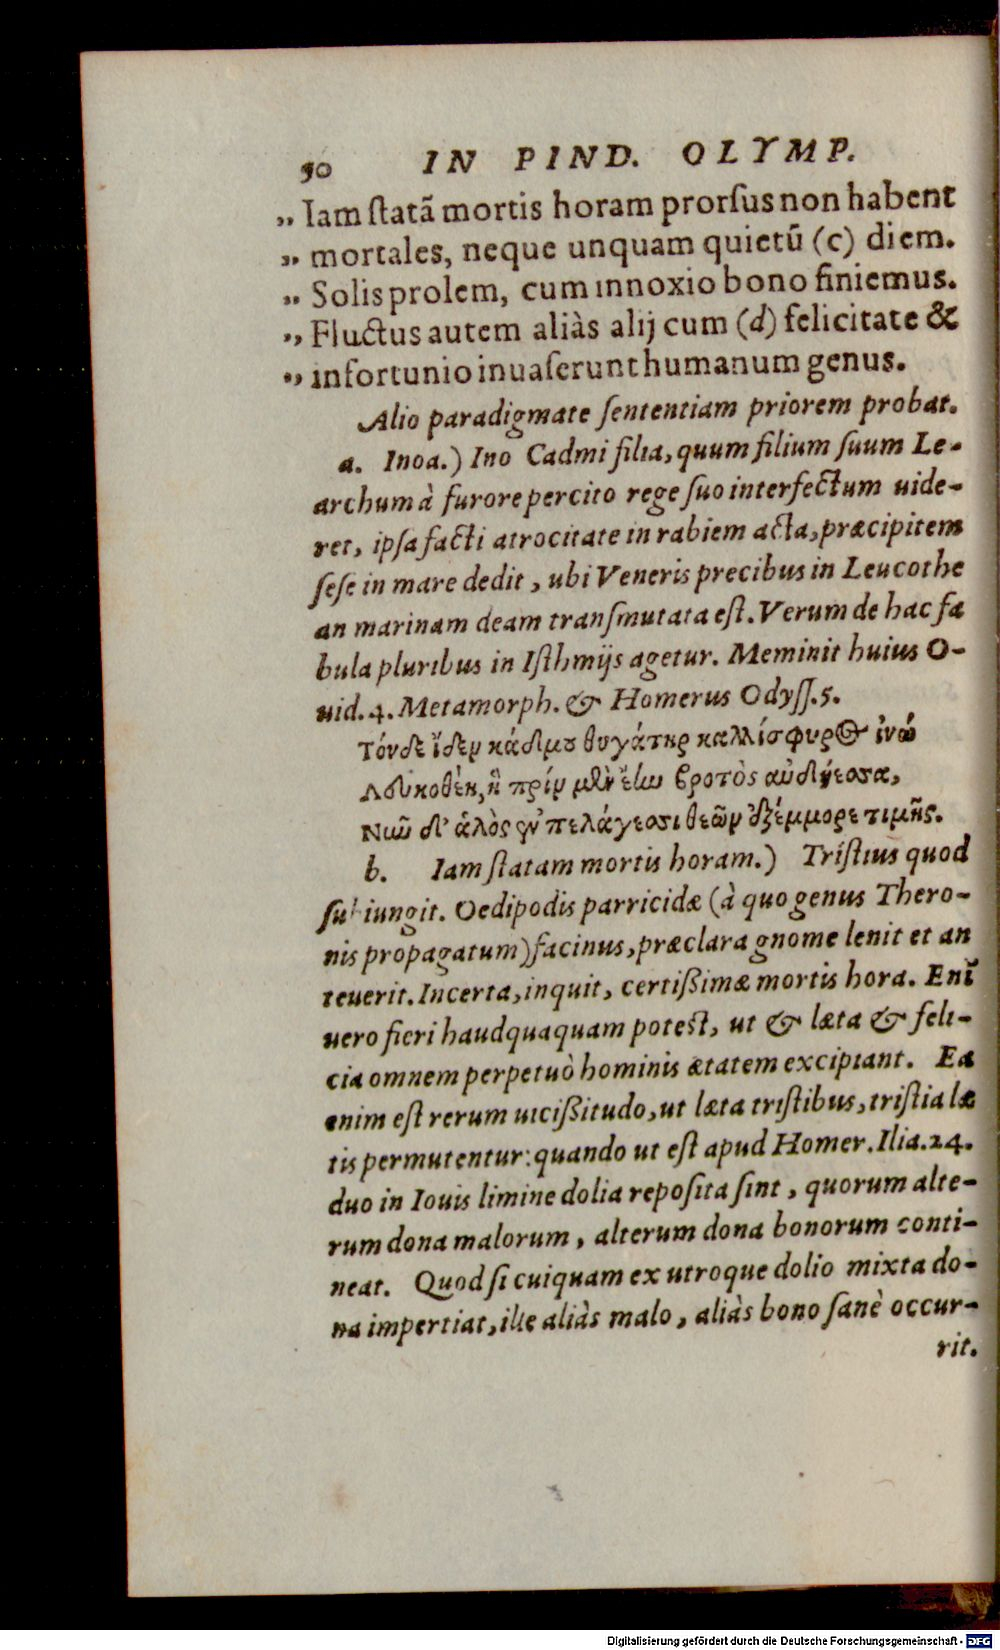 50 IN PIND. OLYMP.
„ Iam ſtatã mortis horam prorſus non habent
„ mortales, neque unquam quietũ (c) diem.
„ Solis prolem, cum innoxio bono finiemus.
„ Fluctus autem aliàs alij cum (d) felicitate &
„ infortunio inuaſerunt humanum genus.
Alio paradigmate ſententiam priorem probat.
a. Inoa.) Ino Cadmi filia, quum filium ſuum Le-
archum à furore percito rege ſuo interfectum uide-
ret, ipſa facti atrocitate in rabiem acta, præcipitem
ſeſe in mare dedit, ubi Veneris precibus in Leucothe
an marinam deam tranſmutata eſt. Verum de hac fa
bula pluribus in Iſthmijs agetur. Meminit huius O-
uid. 4. Metamorph. & Homerus Odyſſ. 5.
Τόνδε ἴδεν κάδμου θυγάτηρ καλλίσφυρος ἰνώ
Λευκοθέη, ἣ πρίν μὲν ἔην βροτὸς αὐδήεσσα,
Νῦν δ' ἁλὸς ἐν πελάγεσσι θεῶν ἐξέμμορε τιμῆς.
b. Iam ſtatam mortis horam.) Triſtius quod
ſubiungit. Oedipodis parricidæ (à quo genus Thero-
nis propagatum) facinus, præclara gnome lenit et an
teuerit. Incerta, inquit, certißimæ mortis hora. Enĩ
uero fieri haudquaquam potest, ut & læta & feli-
cia omnem perpetuò hominis ætatem excipiant. Ea
enim eſt rerum uicißitudo, ut læta triſtibus, triſtia læ
tis permutentur: quando ut eſt apud Homer. Ilia. 24.
duo in Iouis limine dolia repoſita ſint, quorum alte-
rum dona malorum, alterum dona bonorum conti-
neat. Quod ſi cuiquam ex utroque dolio mixta do-
na impertiat, ille aliàs malo, aliàs bono ſanè occur-
rit.
Digitalisierung gefördert durch die Deutsche Forschungsgemeinschaft - DFG